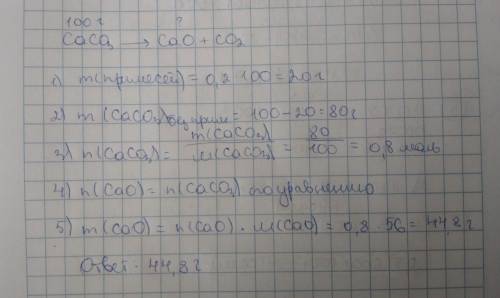 100 г ?
CaCO₃ → CaO + CO₂
1) m(примесей) = 0,2·100 = 20 г
2) m(CaCO₃) без прим = 100 - 20 = 80 г
3) n(CaCO₃) = m(CaCO₃) / M(CaCO₃) = 80 / 100 = 0,8 моль
4) n(CaO) = n(CaCO₃) по уравнению
5) m(CaO) = n(CaO) · M(CaO) = 0,8 · 56 = 44,8 г
Ответ: 44,8 г